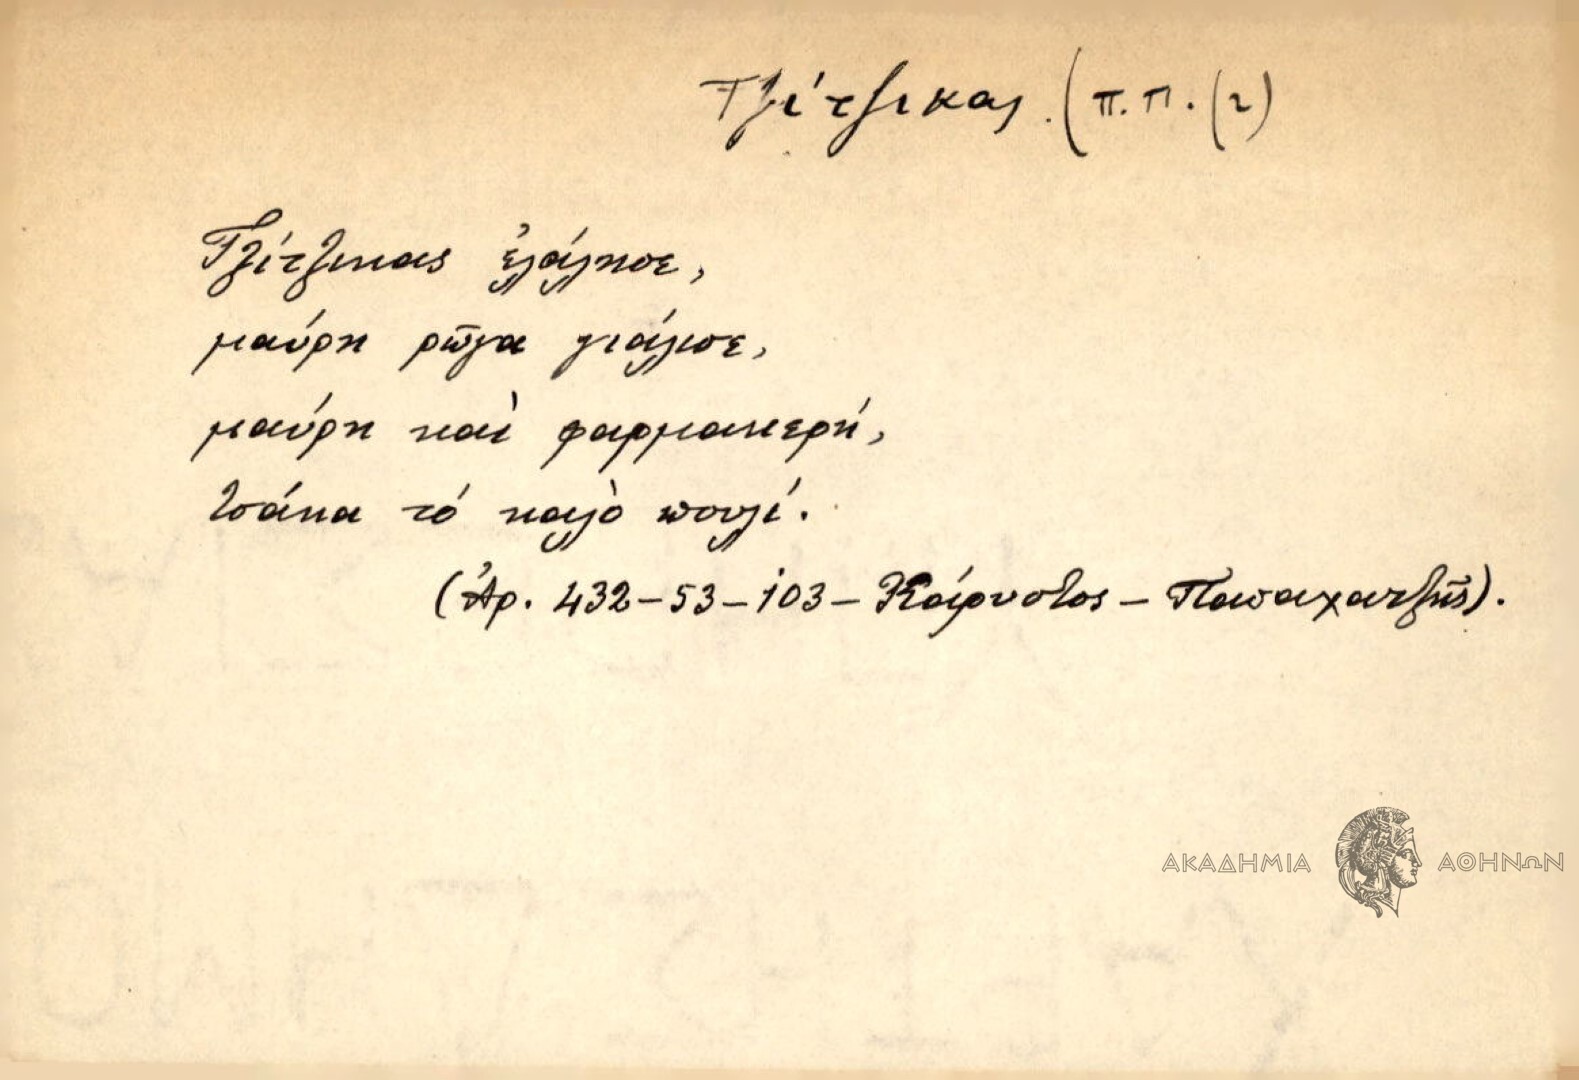 Τζίτζικας. (π.π. (2)
Τζίτζικας ἐλάλησε,
μαύρη ρῶγα γιάλισε,
μαύρη καὶ φαρμακερή,
τσάκα τό καλὸ πουλί.
(Ἀρ. 432-53-103-Κάρυστος-Παπαχατζῆς).
ΑΚΑΔΗΜΙΑ ΑΘΗΝΩΝ